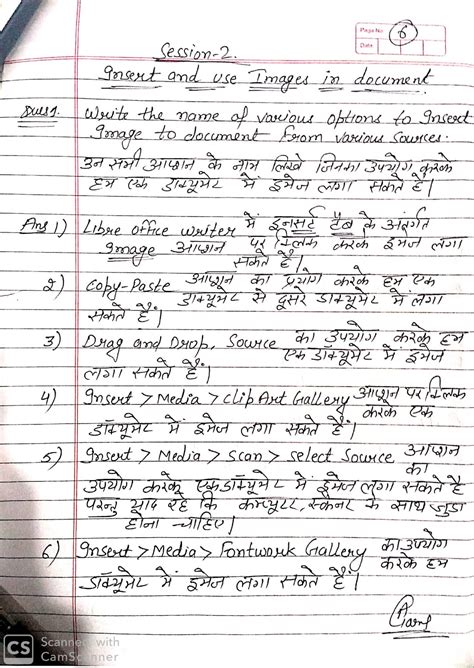 Page No. 6
Date
Session-2.
Insert and use Images in document
Ques1. Write the name of various options to Insert
Image to document from various sources.
उन सभी आप्शन के नाम लिखे जिनका उपयोग करके
हम एक डाक्यूमेंट में इमेज लगा सकते हैं।
Ans 1) Libre office writer में इनसर्ट टैब के अंतर्गत
Image आप्शन पर क्लिक करके इमेज लगा
सकते हैं।
2) Copy-Paste आप्शन का प्रयोग करके हम एक
डाक्यूमेंट से दूसरे डाक्यूमेंट में लगा
सकते हैं।
3) Drag and Drop, Source का उपयोग करके हम
एक डाक्यूमेंट में इमेज
लगा सकते हैं।
4) Insert > Media > Clip Art Gallery आप्शन पर क्लिक
करके एक
डाक्यूमेंट में इमेज लगा सकते हैं।
5) Insert > Media > Scan > Select Source आप्शन
का
उपयोग करके एक डाक्यूमेंट में इमेज लगा सकते हैं
परन्तु याद रहे कि कम्प्यूटर, स्कैनर के साथ जुडा
होना चाहिए।
6) Insert > Media > Fontwork Gallery का उपयोग
करके हम
डाक्यूमेंट में इमेज लगा सकते हैं।
CS Scanned with
CamScanner